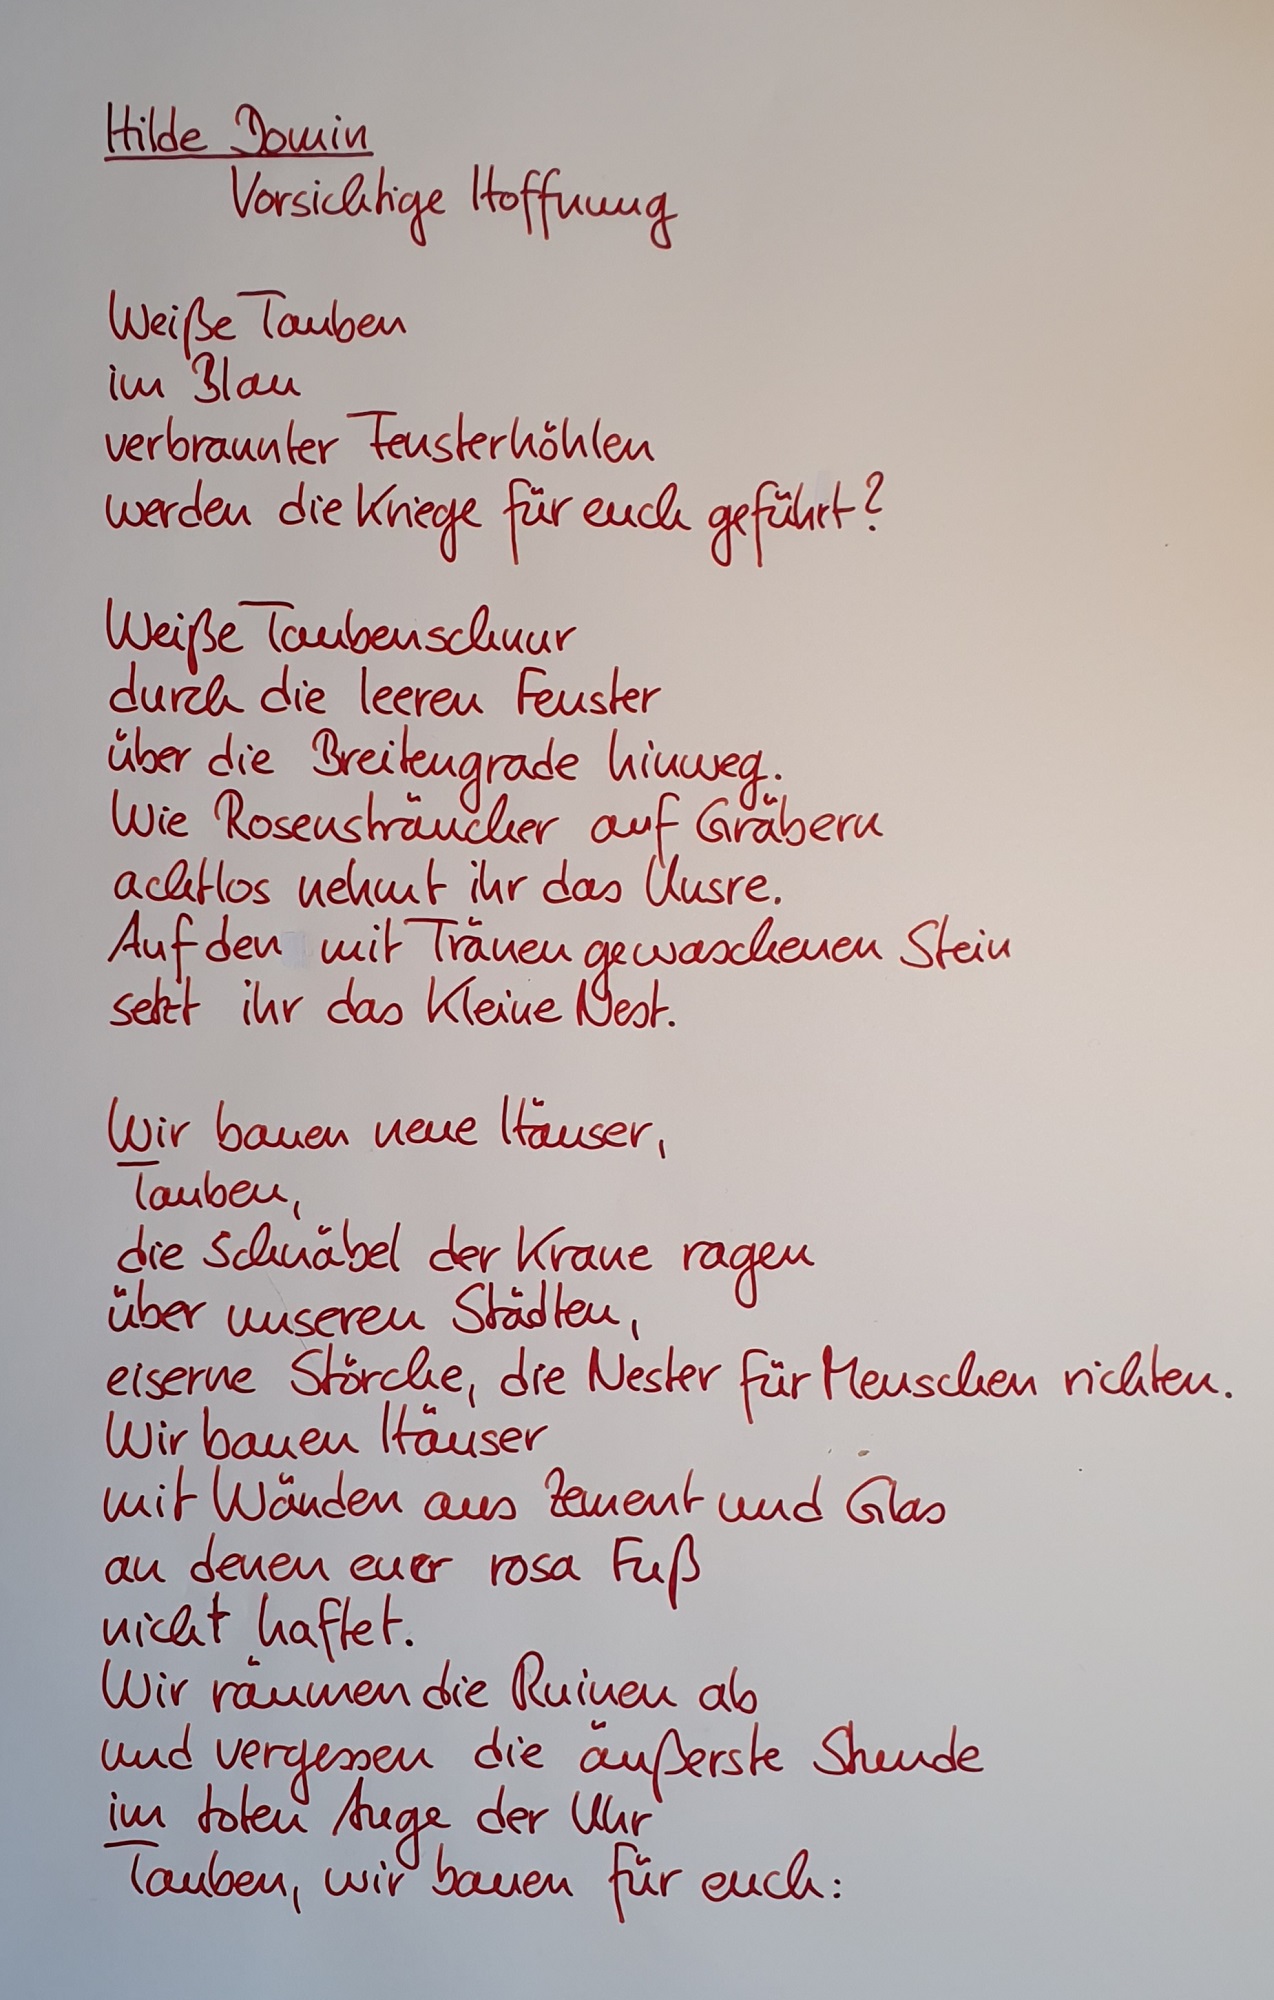 Hilde Domin
Vorsichtige Hoffnung
Weiße Tauben
im Blau
verbrannter Fensterhöhlen
werden die Kriege für euch geführt?
Weiße Taubenschnur
durch die leeren Fenster
über die Breitengrade hinweg.
Wie Rosensträucher auf Gräbern
achtlos nehmt ihr das Unsre.
Auf den mit Tränen gewaschenen Stein
setzt ihr das kleine Nest.
Wir bauen neue Häuser,
Tauben,
die Schnäbel der Krane ragen
über unseren Städten,
eiserne Störche, die Nester für Menschen richten.
Wir bauen Häuser
mit Wänden aus Zement und Glas
an denen euer rosa Fuß
nicht haftet.
Wir räumen die Ruinen ab
und vergessen die äußerste Stunde
im toten Auge der Uhr
Tauben, wir bauen für euch: